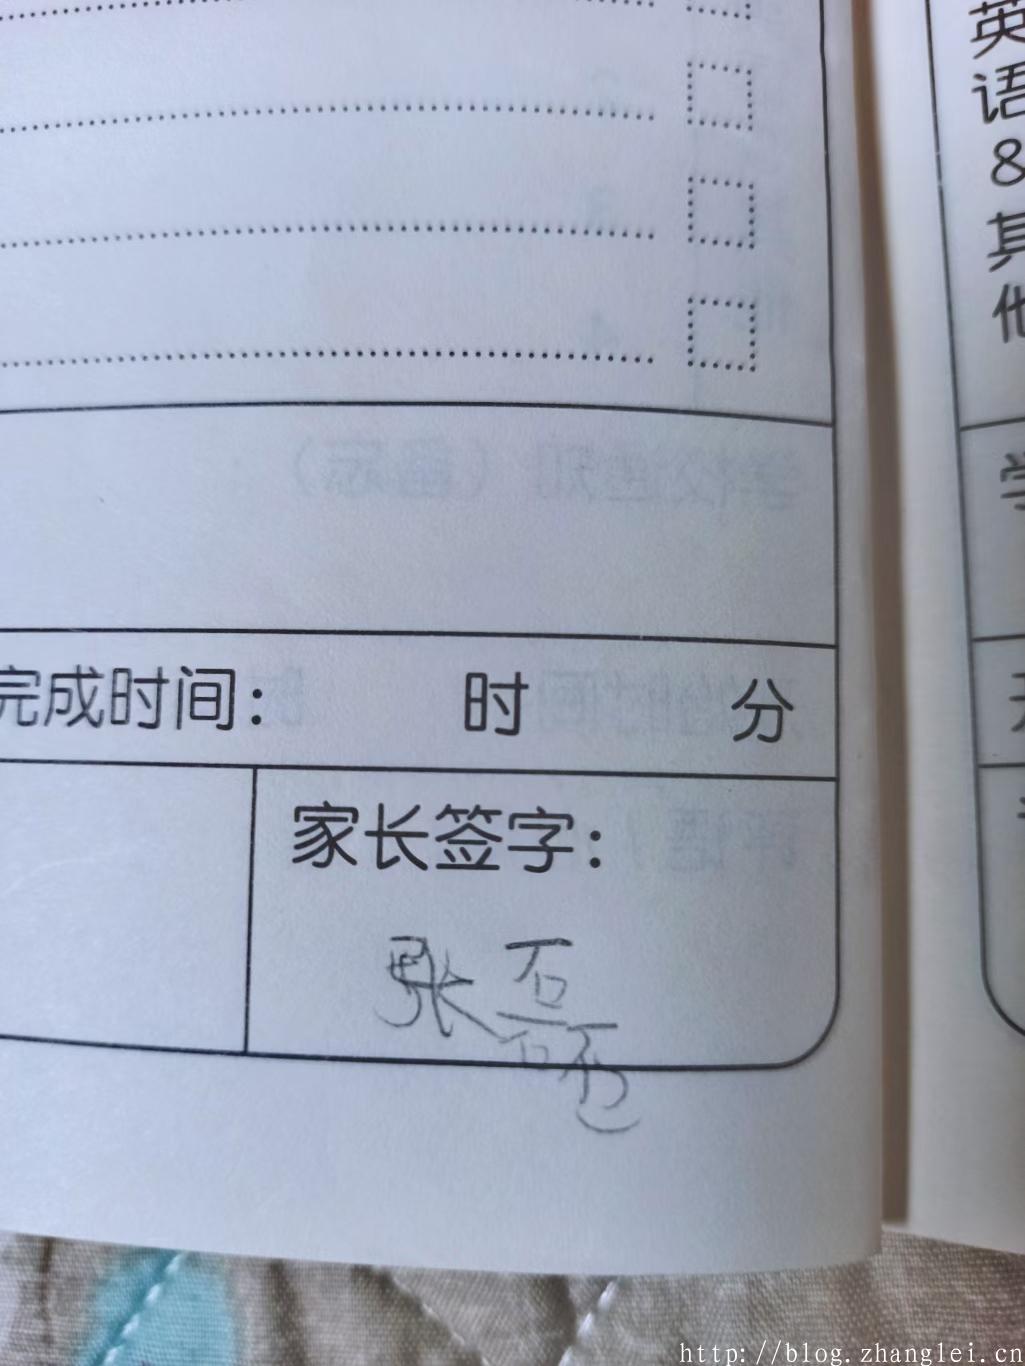 完成时间： 时 分
家长签字：
张磊
英
语
&
其
他
学
http://blog.zhanglei.cn